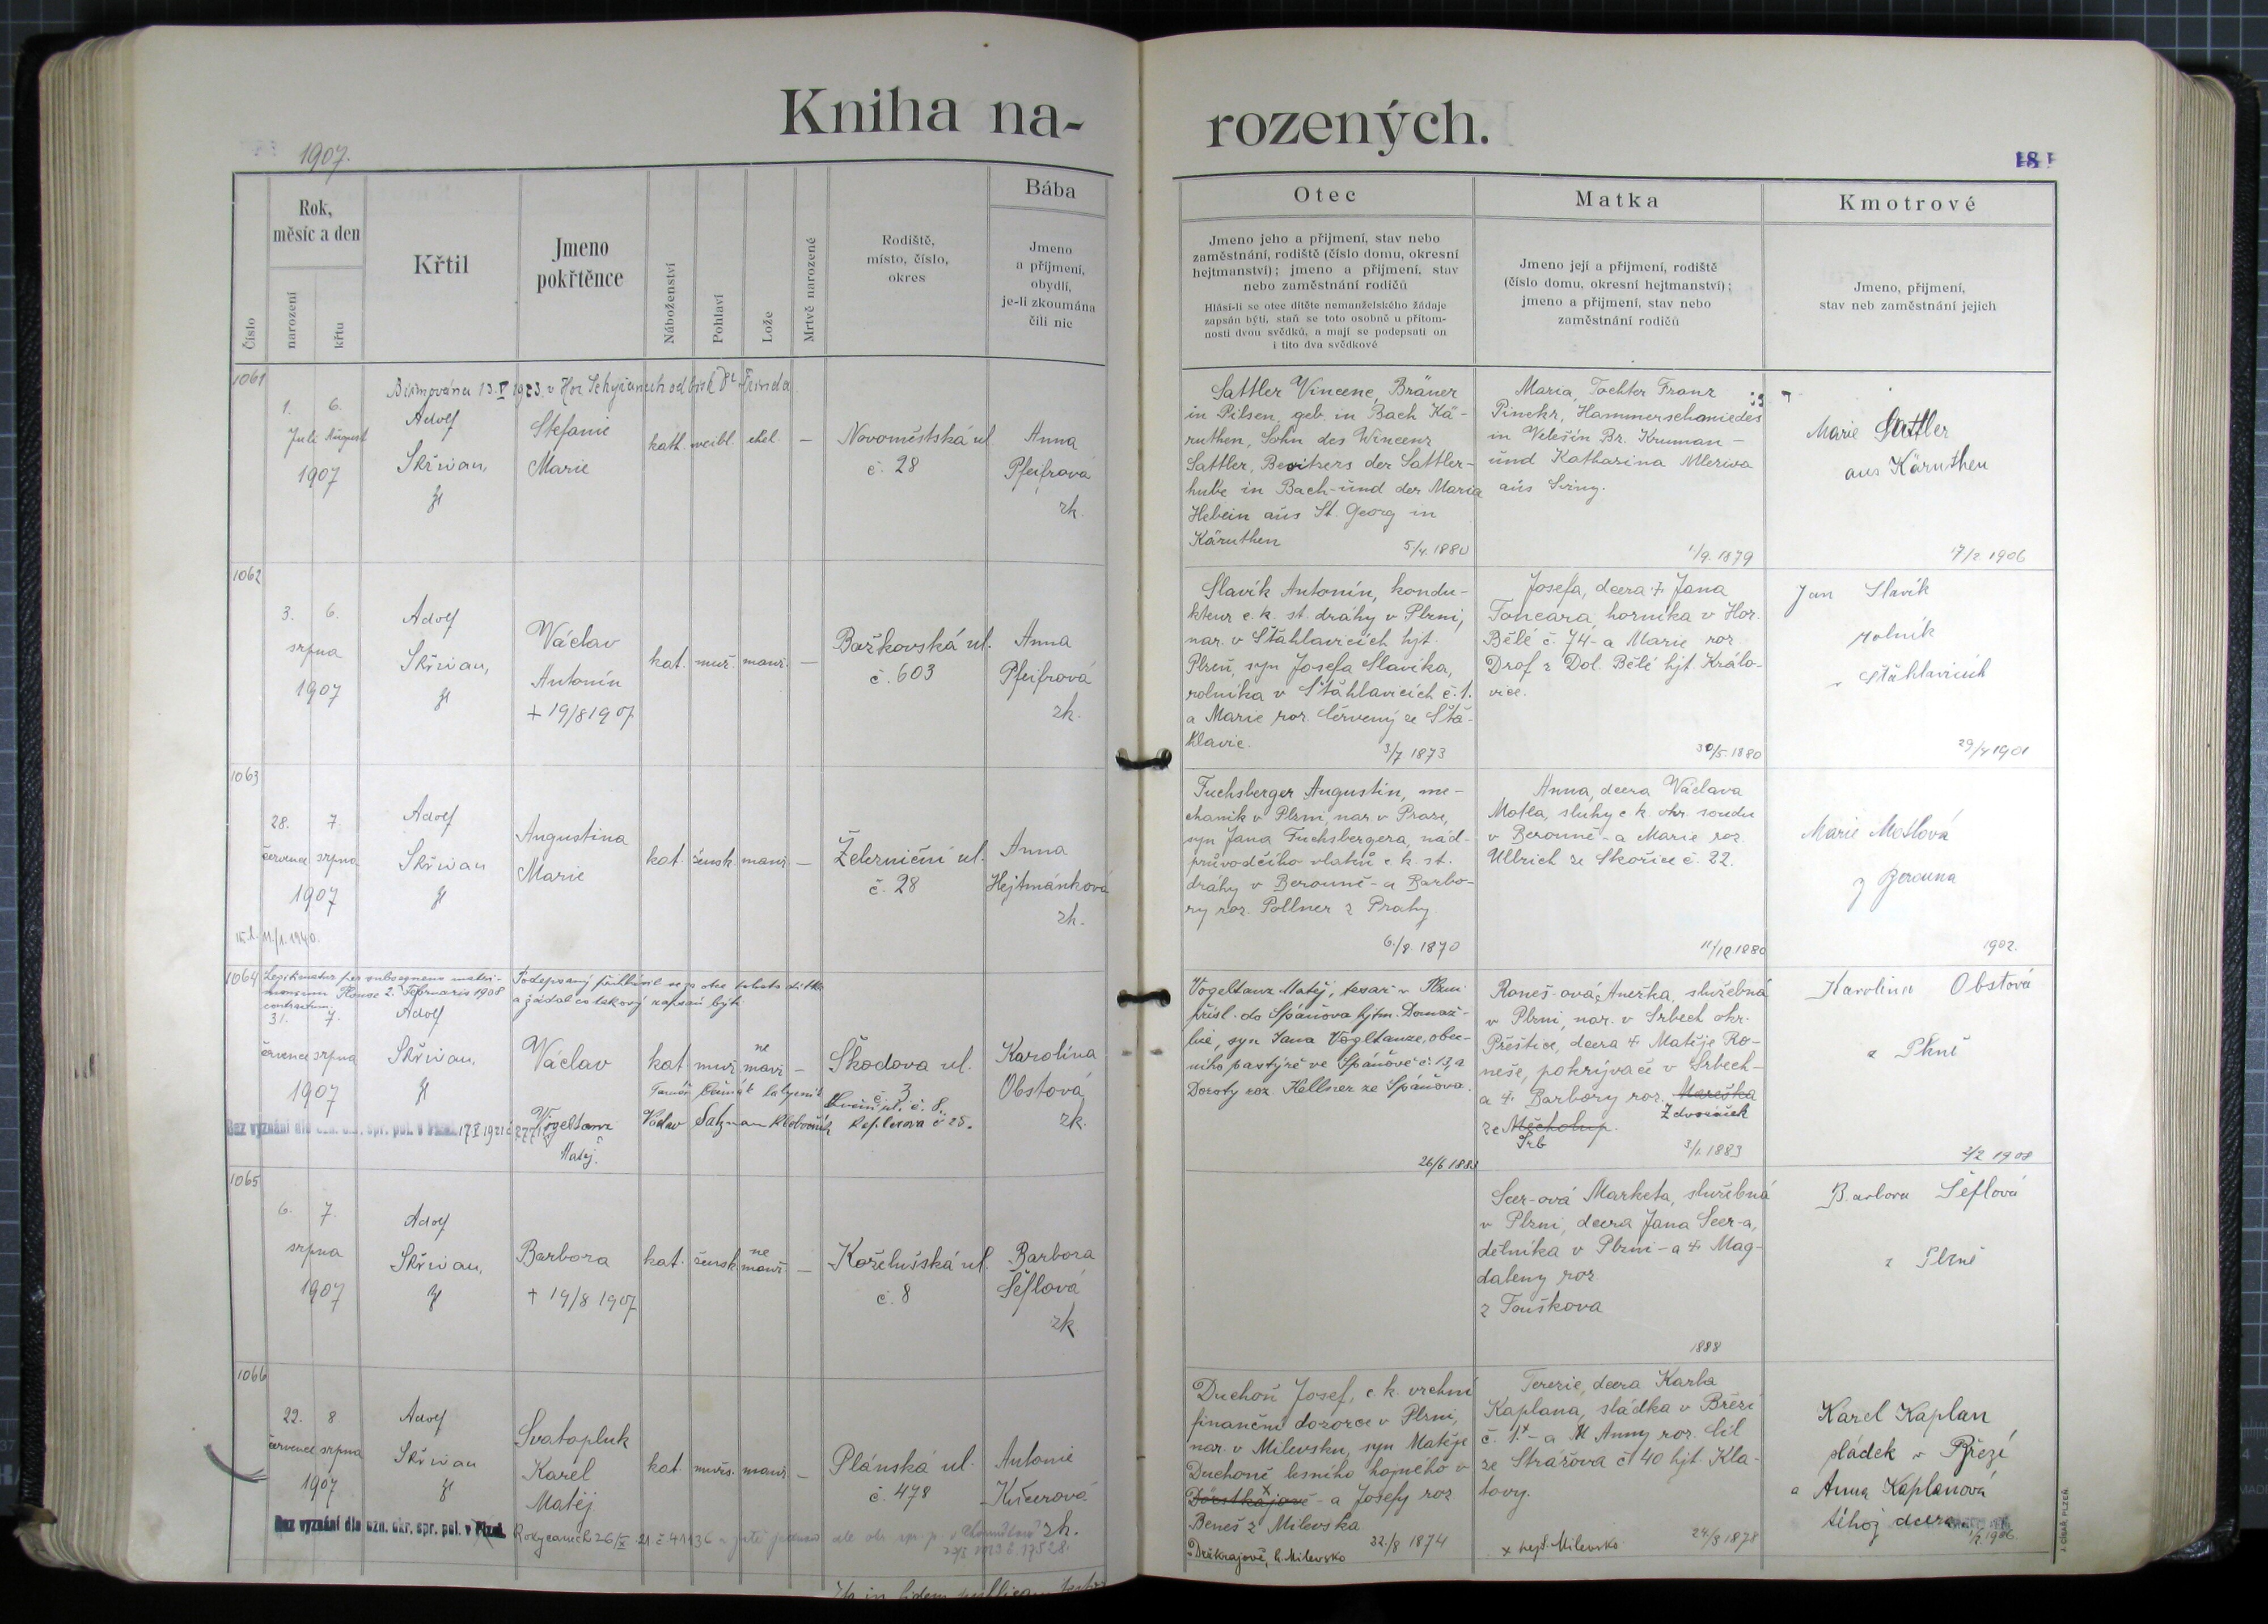 Kniha na-
rozených.
1907.
181
Číslo
Rok,
měsíc a den
narození
křtu
Křtil
Jmeno
pokřtěnce
Náboženství
Pohlaví
Lože
Mrtvě narozené
Rodiště,
místo, číslo,
okres
Bába
Jmeno
a příjmení,
obydlí,
je-li zkoumána
čili nic
Otec
Jmeno jeho a přijmení, stav nebo
zaměstnání, rodiště (číslo domu, okresní
hejtmanství); jmeno a přijmení, stav
nebo zaměstnání rodičů
Hlásí-li se otec dítěte nemanželského žádaje
zapsán býti, staň se toto osobně u přítom-
nosti dvou svědků, a mají se podepsati on
i tito dva svědkové
Matka
Jmeno její a přijmení, rodiště
(číslo domu, okresní hejtmanství);
jmeno a přijmení, stav nebo
zaměstnání rodičů
Kmotrové
Jmeno, přijmení,
stav neb zaměstnání jejich
1061
1. 6.
Juli August
1907
Adolf
Skřivan,
Stefanie
Marie
kath. weibl. ehel. —
Novoměstská ul
č. 28
Anna
Pfeifrová
zk.
Sattler Vincenc, Bräuer
in Pilsen, geb. in Bach Kä-
rnthen, Sohn des Wincenz
Sattler, Besitzers der Sattler-
hube in Bach- und der Maria
Hebein aus St. Georg in
Kärnthen
5/4. 1880
Maria, Tochter Franz
Hammerschmiedes
in Velešín Bz. Krumau-
und Katharina
aus
1/9. 1879
Marie Sattler
aus Kärnthen
17/2 1906
1062
3. 6.
srpna
1907
Adolf
Skřivan,
Václav
Antonín
+ 19/8 1907
kat. muž. manž. —
Božkovská ul.
č. 603
Anna
Pfeifrová
zk.
Slavík Antonín, kondu-
kteur c. k. st. dráhy v Plzni,
nar. v Šťáhlavicích hjt.
Plzeň, syn Josefa Slavíka,
rolníka v Šťáhlavicích č. 1.
a Marie roz. Červený ze Šťá-
hlavic.
3/7 1873
Josefa, dcera + Jana
horníka v Hor.
Bělé č. 74- a Marie roz.
z Dol. Bělé hjt. Králo-
vice.
30/5. 1880
Jan Slavík
rolník
Šťáhlavicích
29/4 1901
1063
28. 7.
července srpna
1907
Adolf
Skřivan
Augustina
Marie
kat. žensk. manž. —
Železniční ul.
č. 28
Anna
Hejtmánková
zk.
11./1. 1940.
Fuchsberger Augustin, me-
chanik v Plzni, nar. v Praze,
syn Jana Fuchsbergera, nád-
průvodčího vlaků c. k. st.
dráhy v Berouně- a Barbo-
ry roz. Pollner z Prahy.
6./8. 1870
Anna, dcera Václava
Motla, sluhy c. k. okr. soudu
v Berouně- a Marie roz.
Ullrich ze Skořice č. 22.
1880
Marie Motlová
z Berouna
1902.
1064
Legitimatus per subsequens matri-
monium Plsnae 2. Februaris 1908
contractum.
Podepsaný přihlásil se za otce tohoto dítka
a žádal co takový zapsán býti
31. 7.
července srpna
1907
Adolf
Skřivan,
Václav
kat. muž. ne manž. —
Škodova ul.
č. 3
Karolina
Obstová
zk.
Vogeltanz
Matěj.
č. 8.
Keplerova č 25.
Bez vyznání dle ozn. okr. spr. pol. v Plzni
Vogeltanz Matěj, tesař v Plzni
přísl. do Spáňova hjtm. Domaž-
lice, syn Jana Vogeltanze, obec-
ního pastýře ve Spáňově č. 13, a
Doroty roz. Kellner ze Spáňova.
26/6 1883
Roneš-ová Anežka, služebná
v Plzni, nar. v Srbech okr.
Přeštice, dcera + Matěje Ro-
neše, pokrývače v Srbech-
a + Barbory roz. Marečka
ze Měcholup.
Srb
3/1. 1883
Karolina Obstová
z Plzně
2/2 1908
1065
6. 7.
srpna
1907
Adolf
Skřivan,
Barbora
+ 19/8 1907
kat. žensk ne manž. —
Koželužská ul.
č. 8
Barbora
Šeflová
zk
Seer-ová Marketa, služebná
v Plzni, dcera Jana Seer-a,
dělníka v Plzni- a + Mag-
daleny roz.
z Touškova
1888
Barbora Šeflová
z Plzně
1066
22. 8
července srpna
1907
Adolf
Skřivan
Svatopluk
Karel
Matěj
kat. mužs. manž. —
Plánská ul.
č. 478
Antonie
Kučerová
zk.
Bez vyznání dle ozn. okr. spr. pol. v Plzni.
Rokycanech 26/IX 21 č 41136
Duchoň Josef, c. k. vrchní
finanční dozorce v Plzni,
nar. v Milevsku, syn Matěje
Duchoně lesního hajného v
- a Josefy roz
Beneš z Milevska
22./8 1874
Držkrajově, h. Milevsko
Terezie, dcera Karla
Kaplana, sládka v Březí
č. 1.- a Anny roz. Cíl
ze Strážova č 40 hjt. Kla-
tovy.
x hejt. Milevsko
24/3 1878
Karel Kaplan
sládek v Březí
a Anna Kaplanová
téhož dcera
1906.
J. CÍSAŘ, PLZEŇ.